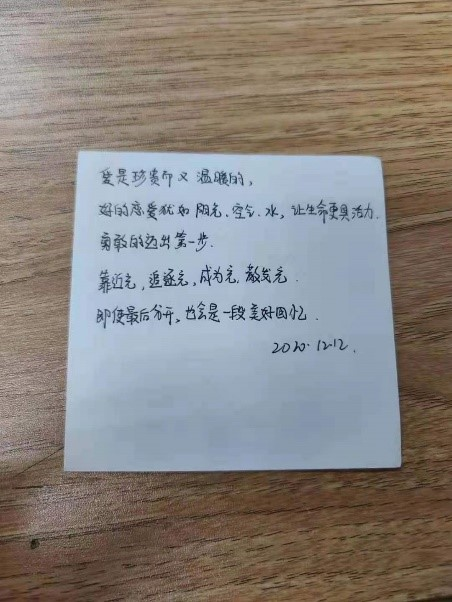 爱是珍贵而又温暖的,
好的恋爱犹如阳光、空气、水,让生命更具活力.
勇敢的迈出第一步.
靠近光,追逐光,成为光,散发光.
即使最后分开,也会是一段美好回忆.
2020.12.12.